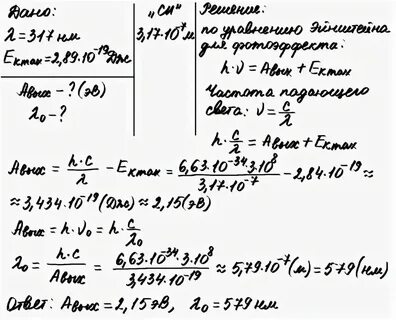 Дано:
λ = 317 нм
Eкmax = 2,89·10⁻¹⁹ Дж
Aвых - ? (эВ)
λ₀ - ?
„СИ”
3,17·10⁻⁷ м
Решение:
по уравнению Эйнштейна
для фотоэффекта:
h·ν = Aвых + Eкmax
Частота падающего
света: ν = c/λ
h·c/λ = Aвых + Eкmax
Aвых = h·c/λ - Eкmax = 6,63·10⁻³⁴·3·10⁸/3,17·10⁻⁷ - 2,84·10⁻¹⁹ ≈
≈ 3,434·10⁻¹⁹ (Дж) ≈ 2,15 (эВ)
Aвых = h·ν₀ = h·c/λ₀
λ₀ = h·c/Aвых = 6,63·10⁻³⁴·3·10⁸/3,434·10⁻¹⁹ ≈ 5,79·10⁻⁷ (м) = 579 (нм)
Ответ: Aвых = 2,15 эВ, λ₀ = 579 нм